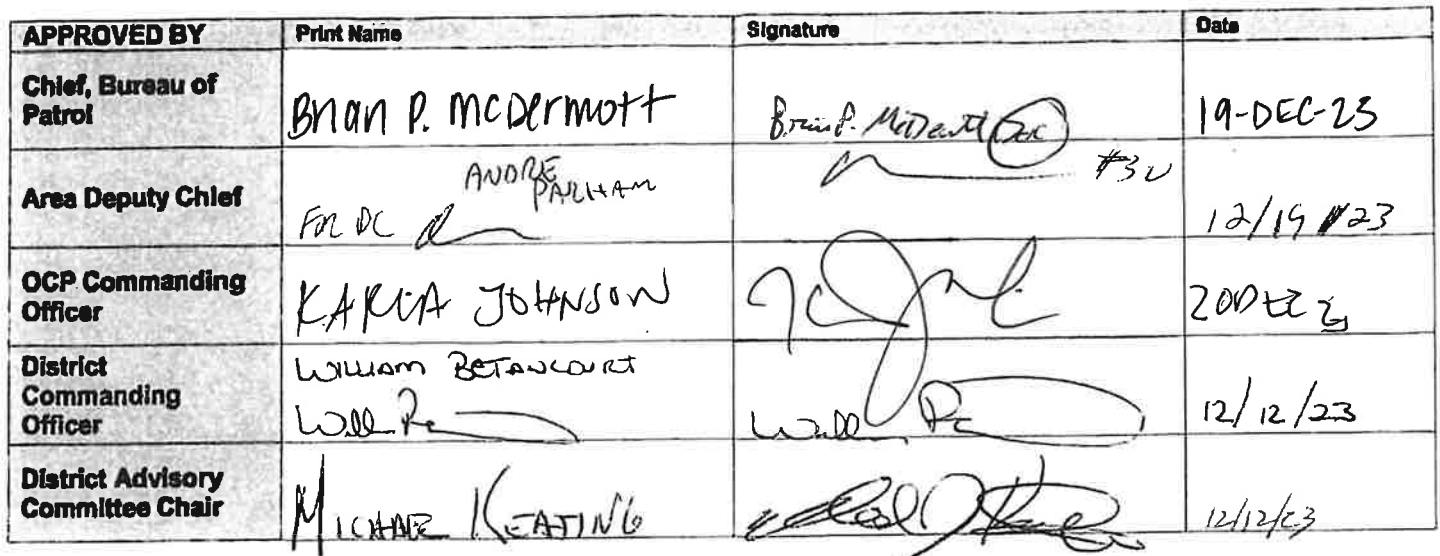 APPROVED BY Print Name Signature Date
Chief, Bureau of
Patrol
Brian P. McDermott Brian P. McDermott 19-DEC-23
Area Deputy Chief
ANDRE
PARHAM
For DC
12/19/23
OCP Commanding
Officer
KARLA JOHNSON 20DEC23
District
Commanding
Officer
WILLIAM BETANCOURT
12/12/23
District Advisory
Committee Chair
MICHAEL KEATING 12/12/23